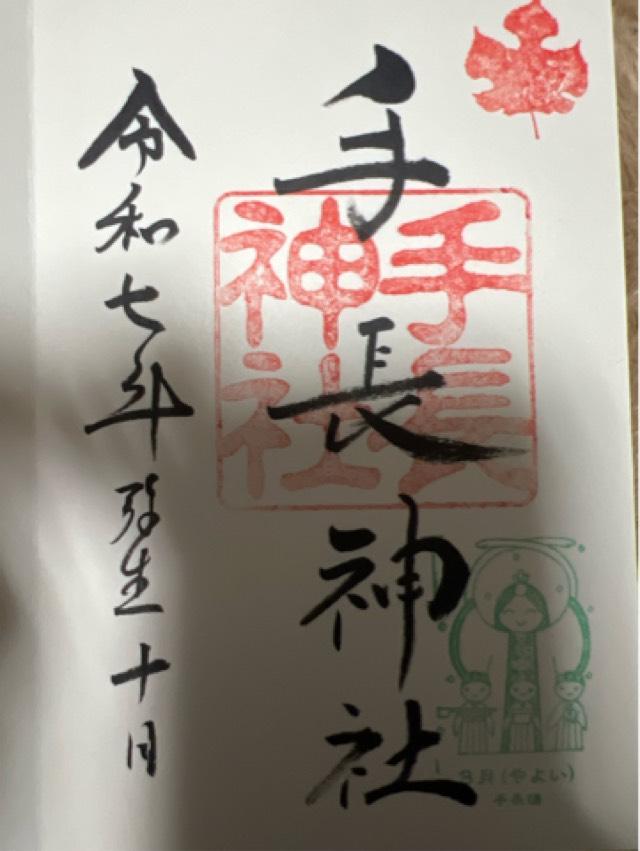 手長神社
手長
神社
3月(やよい)
令和七年弥生十日